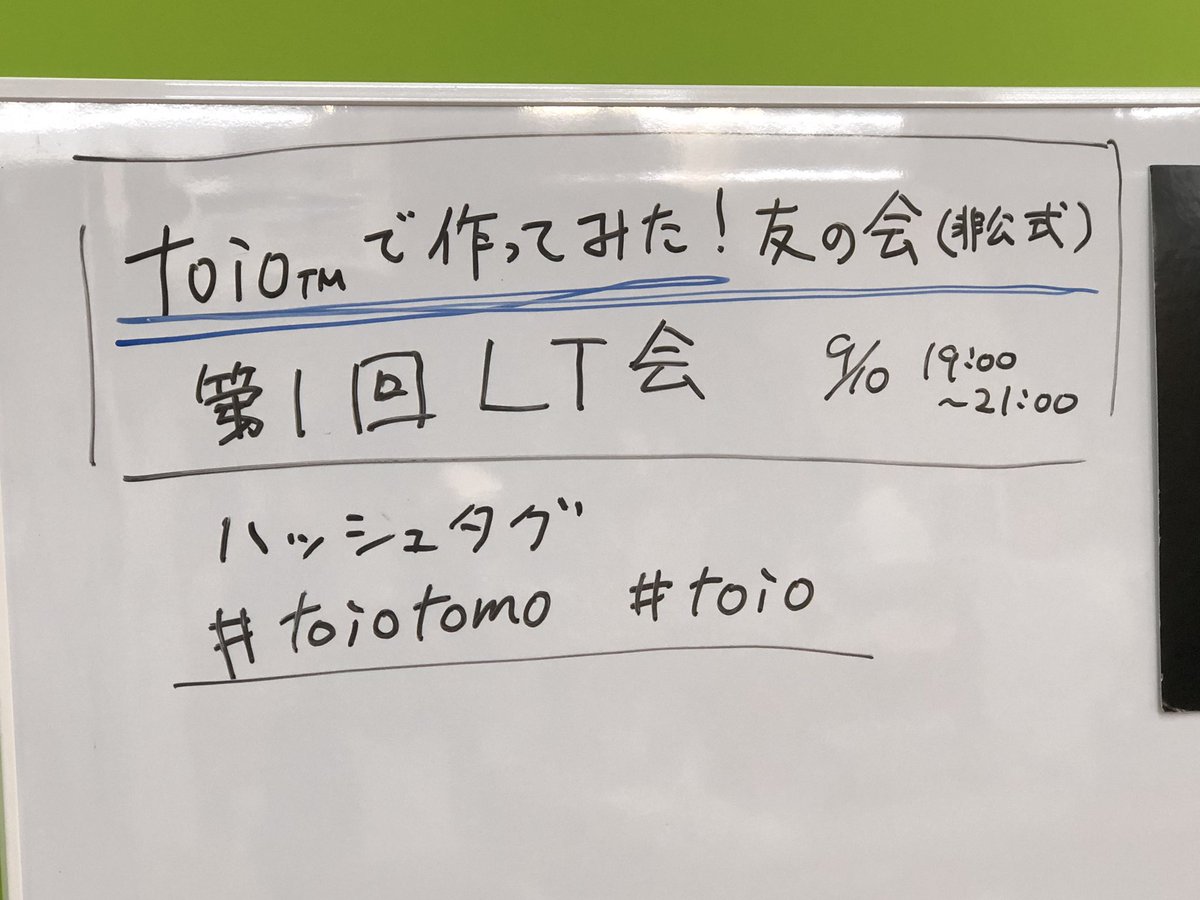 toio™で作ってみた！友の会(非公式)
第1回 LT会 9/10 19:00
～21:00
ハッシュタグ
#toiotomo #toio